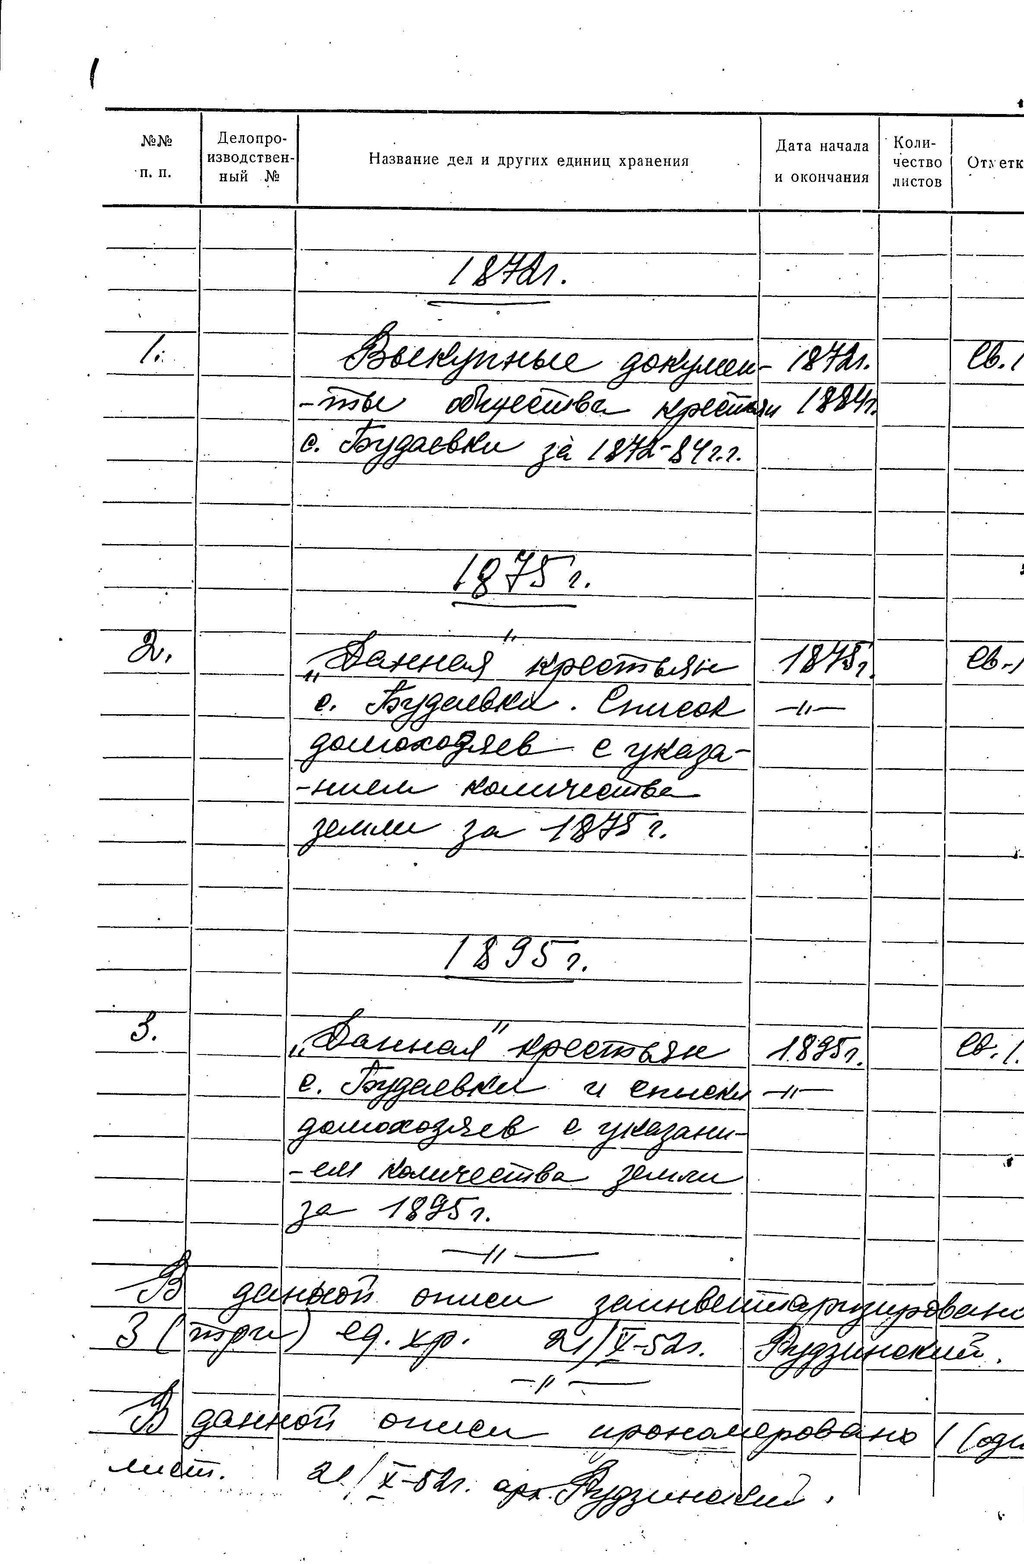 1
№№ п. п. Делопро-изводствен-ный № Название дел и других единиц хранения Дата начала и окончания Коли-чество листов Отметк
1872г.
1. Выкупные докумен- 1872г. св. 1
-ты общества крестьян 1884г.
с. Будаевки за 1872-84 г.г.
1875 г.
2. „Данная" крестьян 1875г. св. 1
с. Будаевки. Список -"-
домохозяев с указа-
-нием количества
земли за 1875 г.
1895 г.
3. „Данная" крестьян 1895г. св. 1.
с. Будаевки и списки -"-
домохозяев с указани-
-ем количества земли
за 1895 г.
-"-
В данной описи заинвентаризировано
3 (три) ед. хр. 21/X-52г. Рудзинский.
-"-
В данной описи пронумеровано 1 (оди
лист. 21/X-52г. арх. Рудзинский.